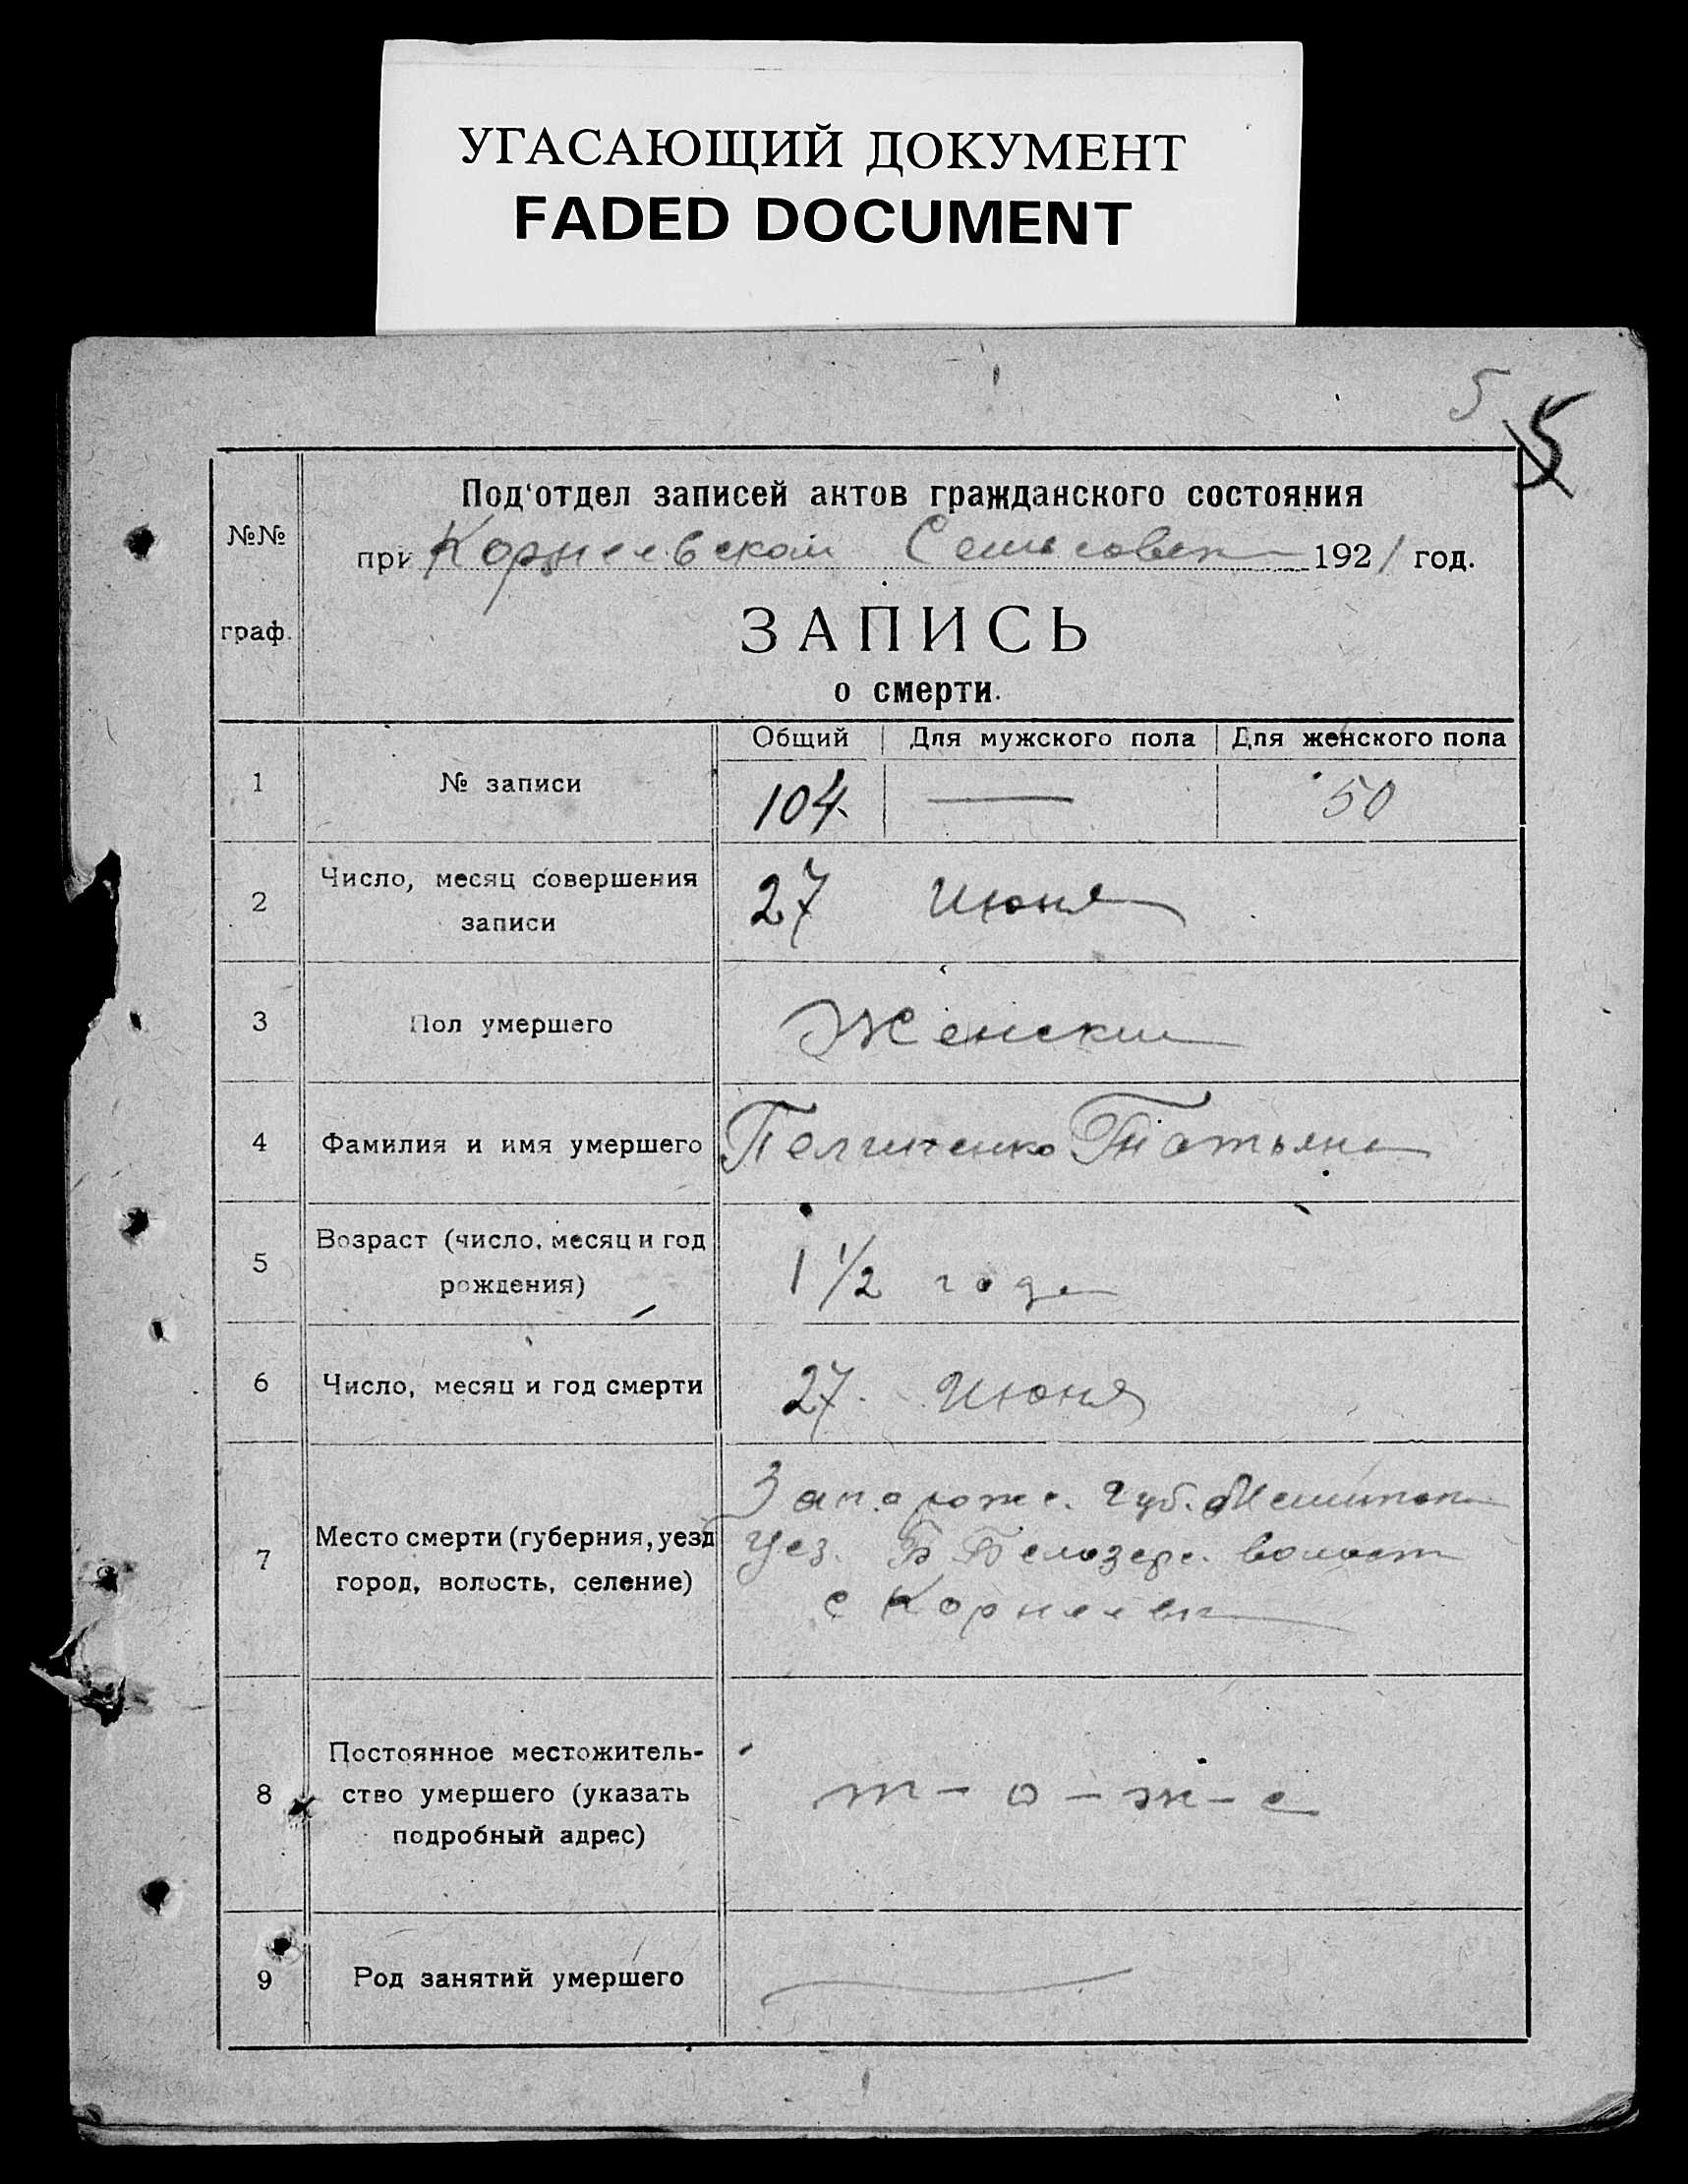 УГАСАЮЩИЙ ДОКУМЕНТ
FADED DOCUMENT
5 5
№№
граф.
Под'отдел записей актов гражданского состояния
при Корнеевском Сельсовет 1921 год.
ЗАПИСЬ
о смерти.
Общий Для мужского пола Для женского пола
1 № записи 104. — 50
2 Число, месяц совершения
записи
27 Июня
3 Пол умершего Женский
4 Фамилия и имя умершего Татьяна
5 Возраст (число, месяц и год
рождения)
1 1/2 года
6 Число, месяц и год смерти 27. Июня
7 Место смерти (губерния, уезд
город, волость, селение)
Запорожс. Губ.
Уез. Б Белозерс. волость
с Корнеевка
8 Постоянное местожитель-
ство умершего (указать
подробный адрес)
т - о - ж - е
9 Род занятий умершего